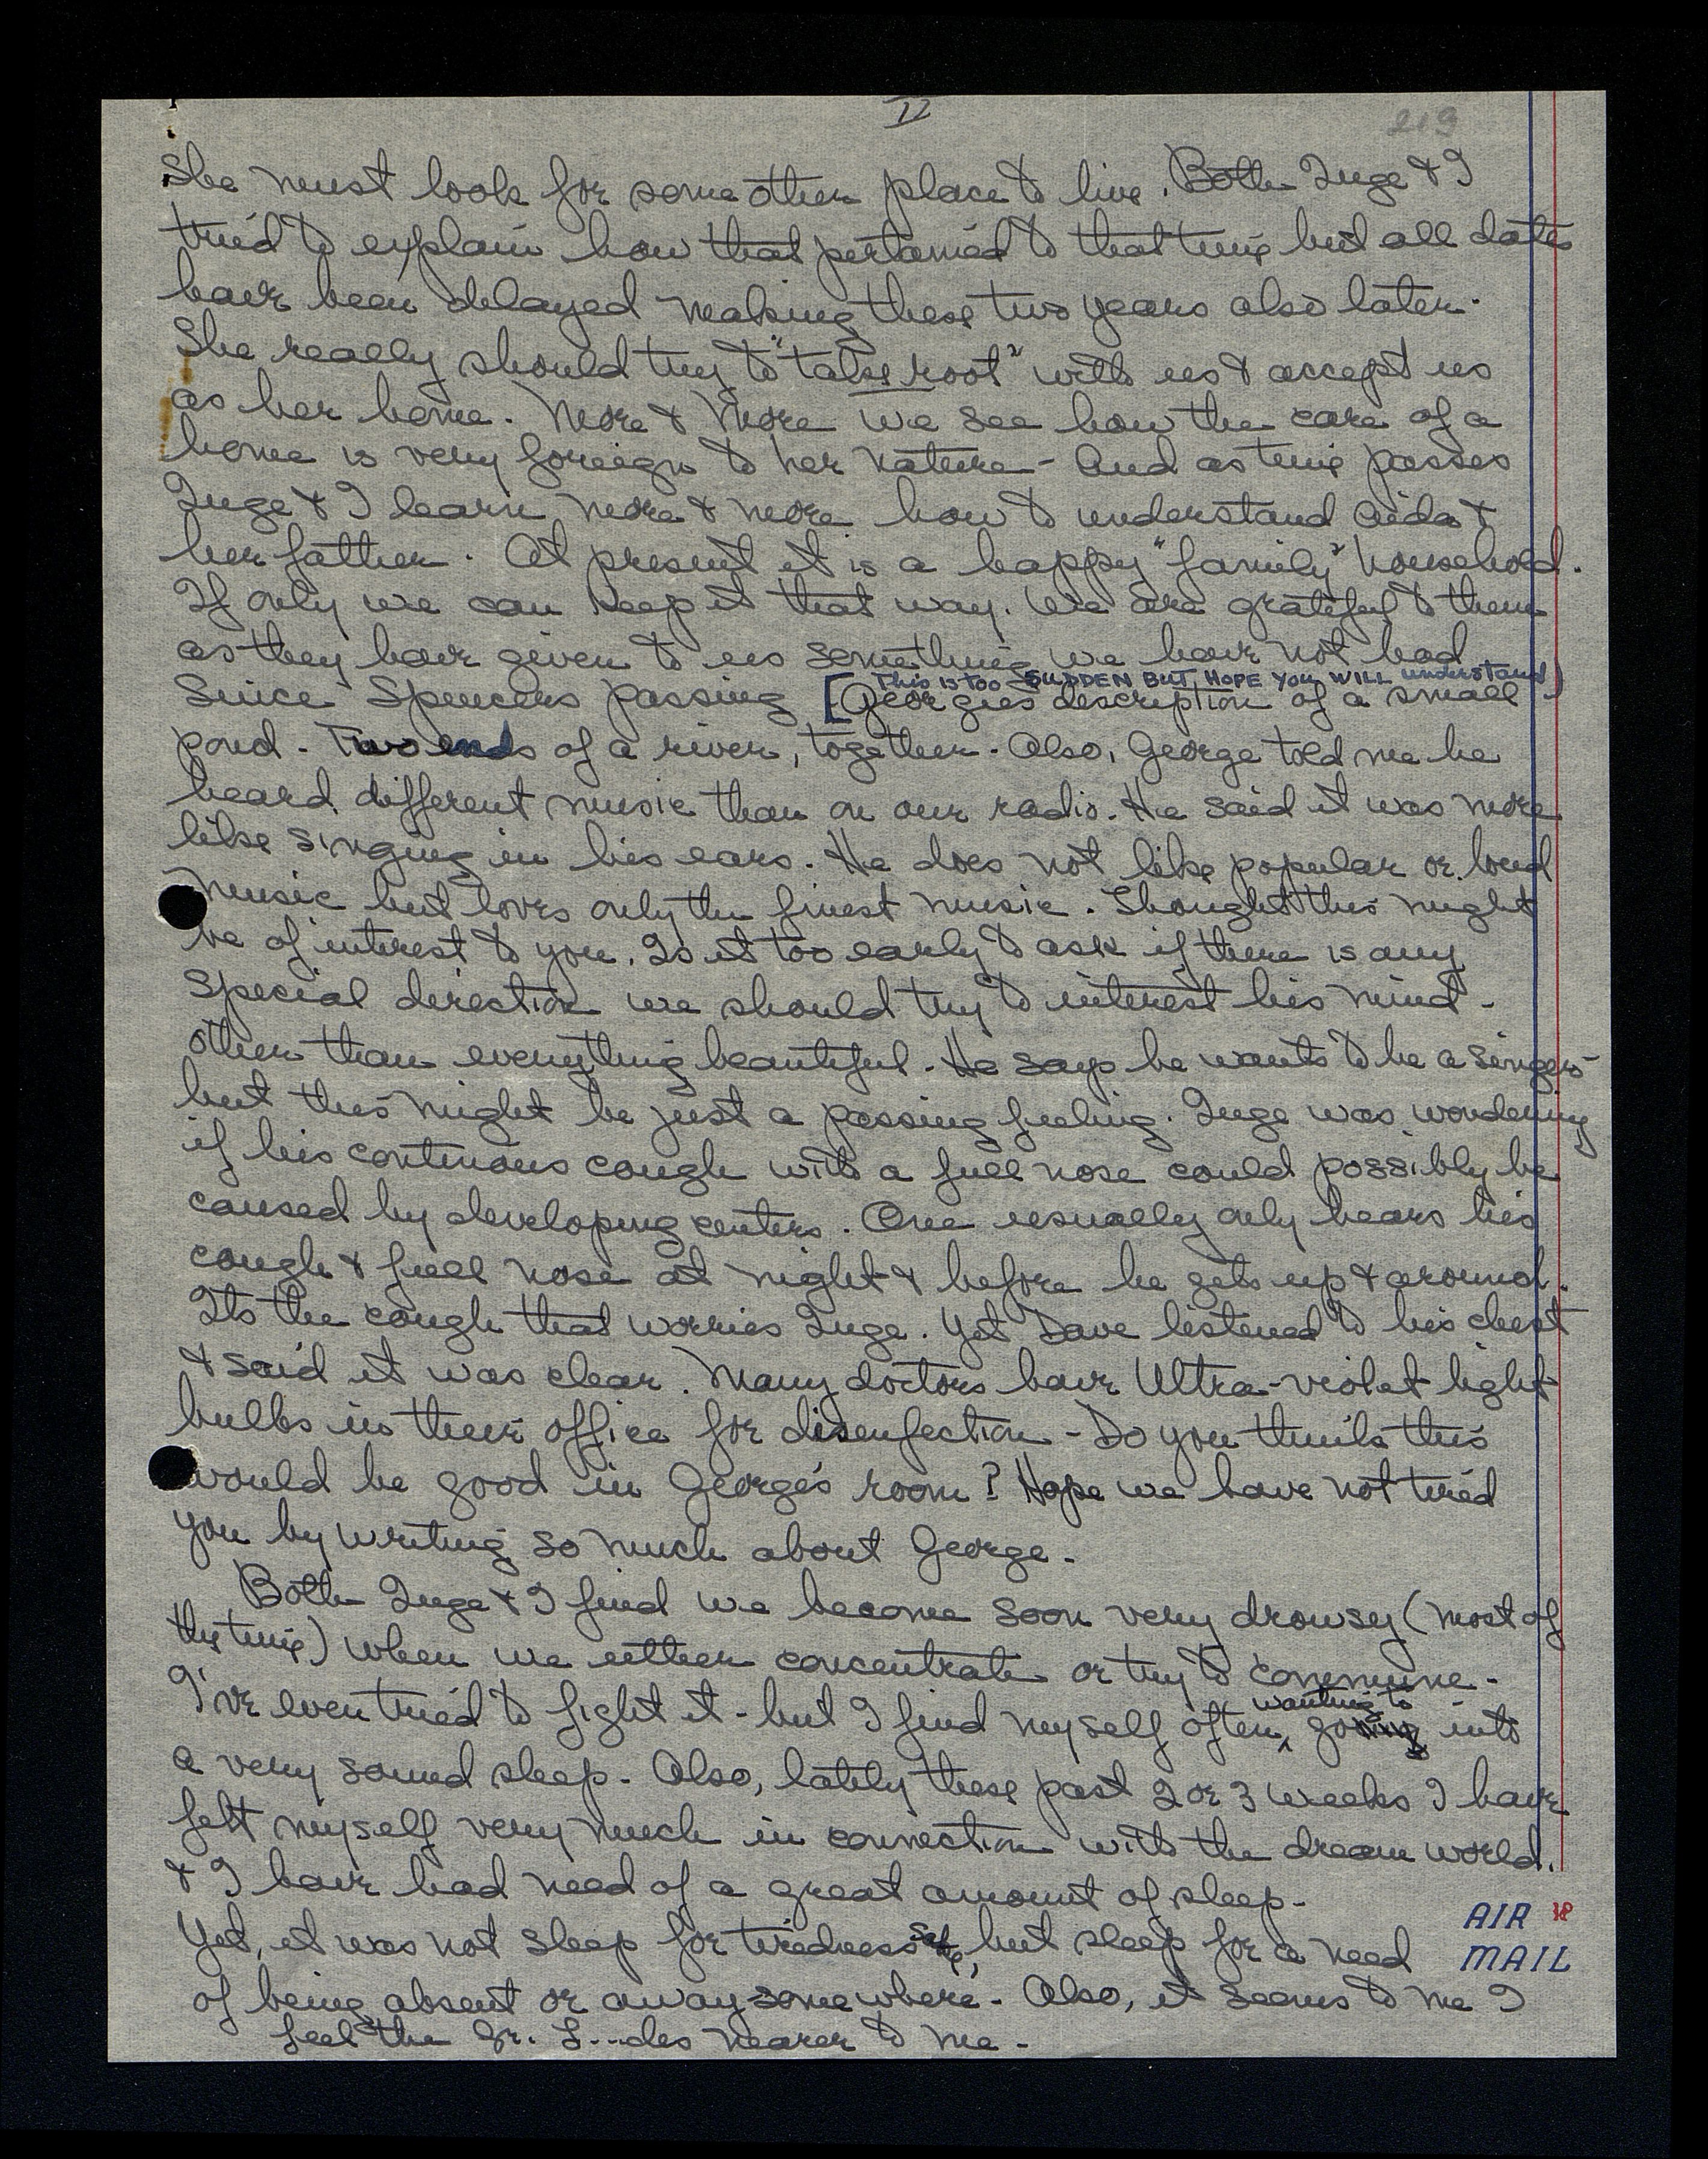 II
219
She must look for some other place to live. Both Inge & I
tried to explain how that pertained to that time but all dates
have been delayed making these two years also later.
She really should try to "take root" with us & accept us
as her home. More & more we see how the care of a
home is very foreign to her nature - And as time passes
Inge & I learn more & more how to understand Aida &
her father. At present it is a happy "family" household.
If only we can keep it that way. We are grateful to them
as they have given to us something we have not had
This is too SUDDEN BUT HOPE YOU WILL understand)
Since Spencers passing [Georgies description of a small
pond - Two ends of a river, together. Also, George told me he
heard different music than on our radio. He said it was more
like singing in his ears. He does not like popular or loud
music but loves only the finest music. Thought this might
be of interest to you. Is it too early to ask if there is any
special direction we should try to interest his mind -
other than everything beautiful. He says he wants to be a singer -
but this might be just a passing feeling. Inge was wondering
if his continous cough with a full nose could possibly be
caused by developing centers. One usually only hears his
cough & full nose at night & before he gets up & around.
Its the cough that worries Inge. Yet Dave listened to his chest
& said it was clear. Many doctors have Ultra-violet light
bulbs in their office for disenfection - Do you think this
would be good in George's room? Hope we have not tired
you by writing so much about George.
Both Inge & I find we become soon very drowsy (most of
the time) when we either concentrate or try to commune -
wanting to
I've even tried to fight it - but I find myself often go into
a very sound sleep. Also, lately these past 2 or 3 weeks I have
felt myself very much in connection with the dream world.
& I have had need of a great amount of sleep -
Yet, it was not sleep for tiredness sake, but sleep for a need
of being absent or away somewhere. Also, it seems to me I
feel the Gr. L...des nearer to me -
AIR
MAIL